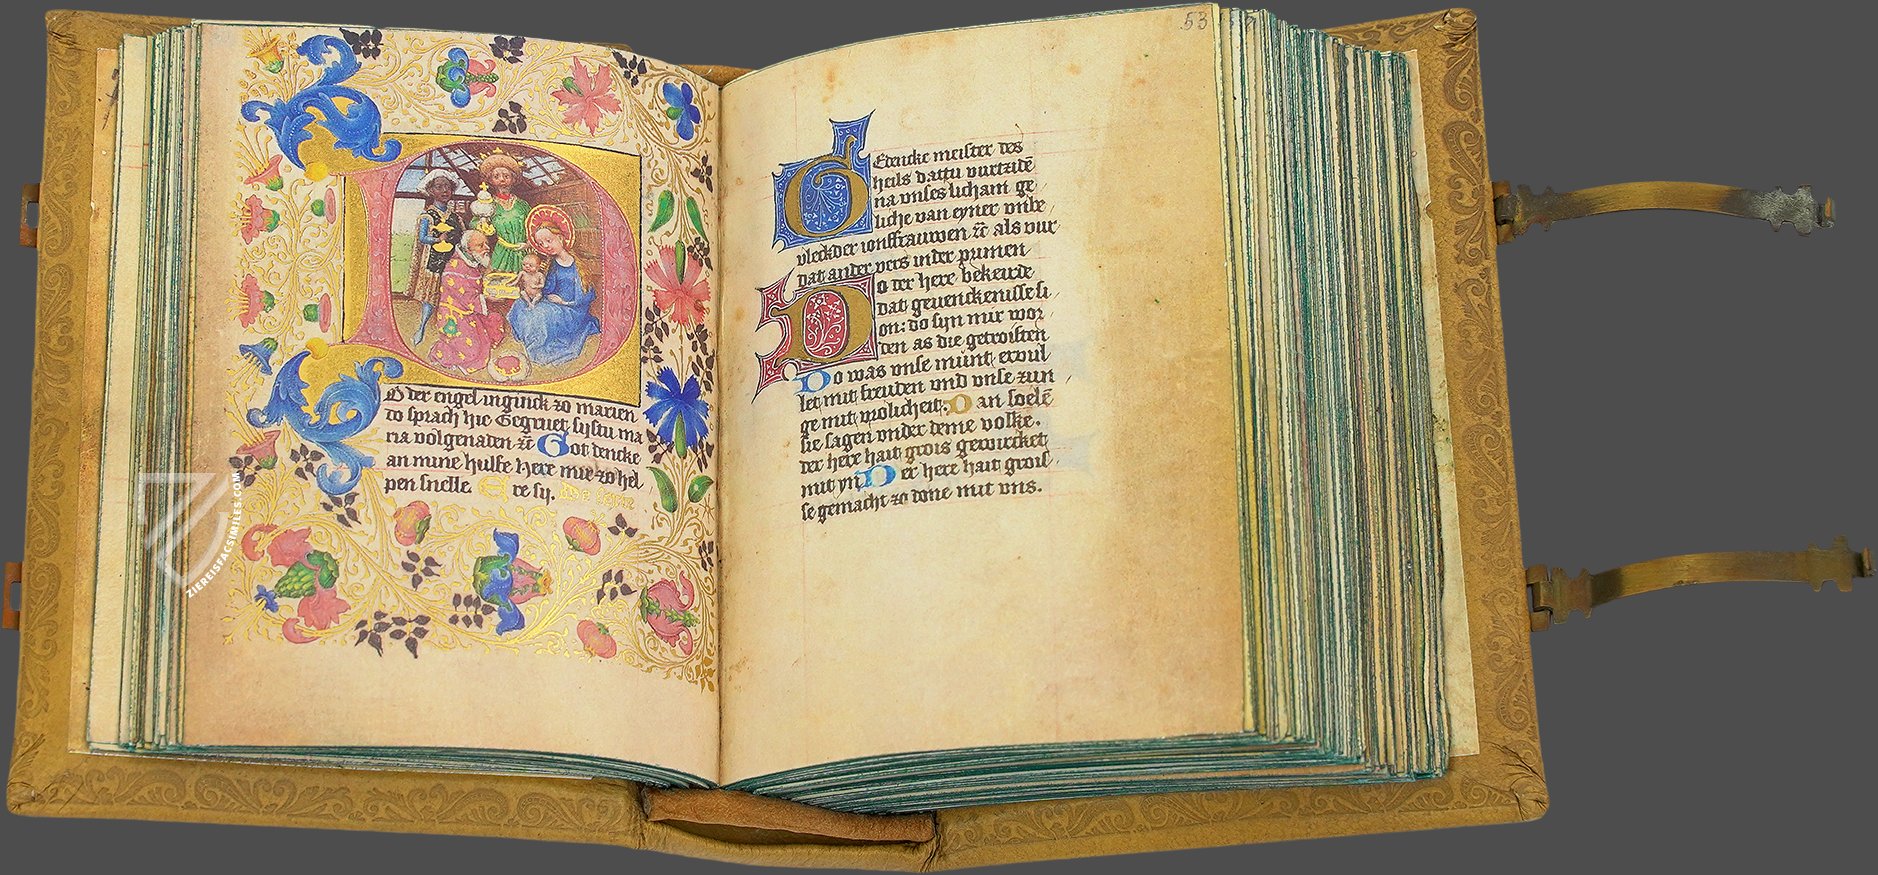 O der engel inguick zo marien
do sprach hie Gegruet sijstu ma
ria vol genaden zc Got dencke
an mine hulfe Here mir zo hel
pen snelle. Ere sij.
53
Gedencke meister des
heils dattu vurtzide
na unses licham ge
liche van eyner unbe
vleckder ionffrauwen zc als vur
dat ander vers inder primen
Do der here bekerde
dat gevenckenisse si
on: do sijn mir wor
den as die getroisten
Do was unse munt ervul
let mit freuden und unse zun
ge mit vrolicheit. Dan soele
sie sagen under deme volke.
der here hait grois gewircket
mit yn Der here hait grois
se gemacht zo done mit uns.
ZIEREISFACSIMILES.COM